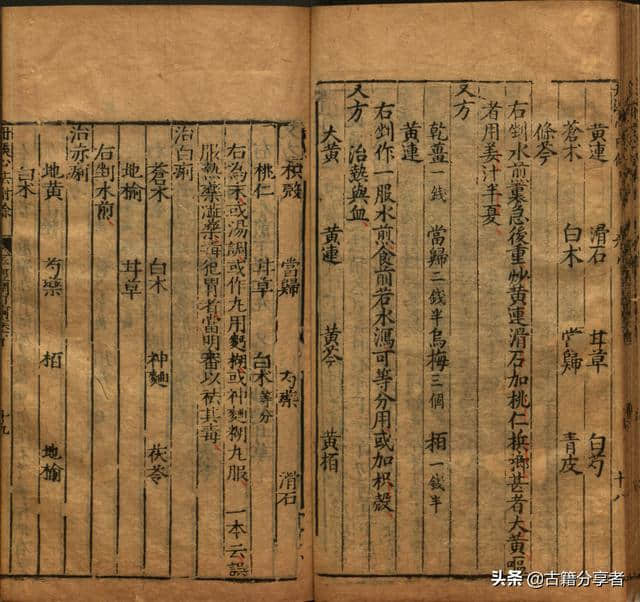 黄連　滑石　甘草　白芍
蒼朮　白朮　當歸　青皮
條芩
右剉水煎裏急後重炒黄連滑石加桃仁檳榔甚者大黄嘔
者用姜汁半夏
又方
乾薑一錢　當歸二錢半　烏梅三個　栢一錢半
黄連
右剉作一服水煎食前若水瀉可等分用或加枳殻
又方　治熱與血
大黄　黄連　黄芩　黄栢
枳殻　當歸　芍藥　滑石
桃仁　甘草　白朮等分
右為末或湯調或作丸用麪糊或神麯糊丸服　一本云誤
服熱藥澁藥毒犯胃者當明審以祛其毒
治白痢
蒼朮　白朮　神麯　茯苓
地榆　甘草
右剉水煎
治赤痢
地黄　芍藥　栢　地榆
白朮
十八
十九
头条 @古籍分享者